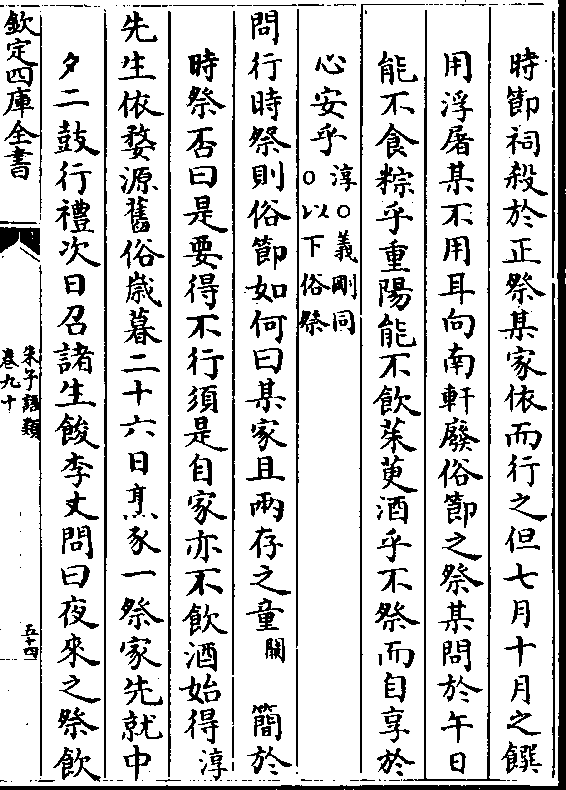 時節祠殺於正祭某家依而行之但七月十月之饌
用浮屠某不用耳向南軒廢俗節之祭某問於午日
能不食粽乎重陽能不飲茱萸酒乎不祭而自享於
心安乎淳○義剛同○以下俗祭
問行時祭則俗節如何曰某家且兩存之童闕簡於
時祭否曰是要得不行須是自家亦不飲酒始得淳
先生依婺源舊俗歲暮二十六日烹豕一祭家先就中
夕二鼓行禮次日召諸生餕李丈問曰夜來之祭飲
欽定四庫全書
朱子語類
卷九十
五十四